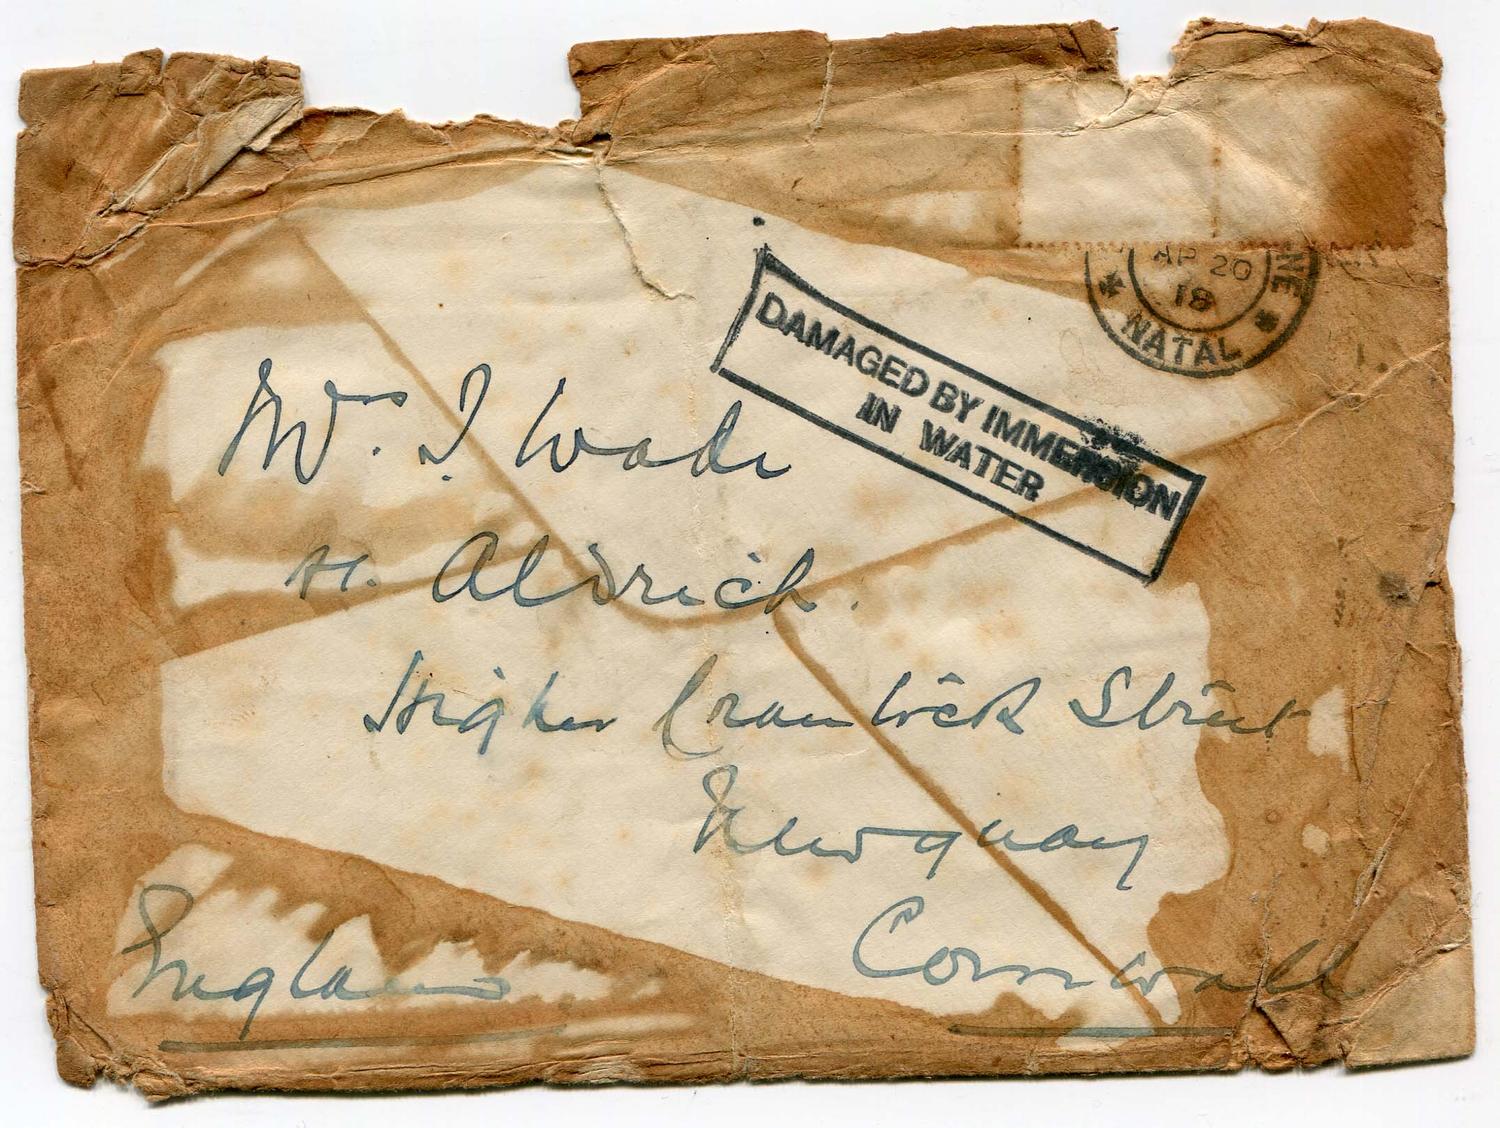 AP 20
18
NE
NATAL
DAMAGED BY IMMERSION
IN WATER
Mrs. J. Wade
H. Aldrich.
Higher Crantock Street
Newquay
Cornwall
England